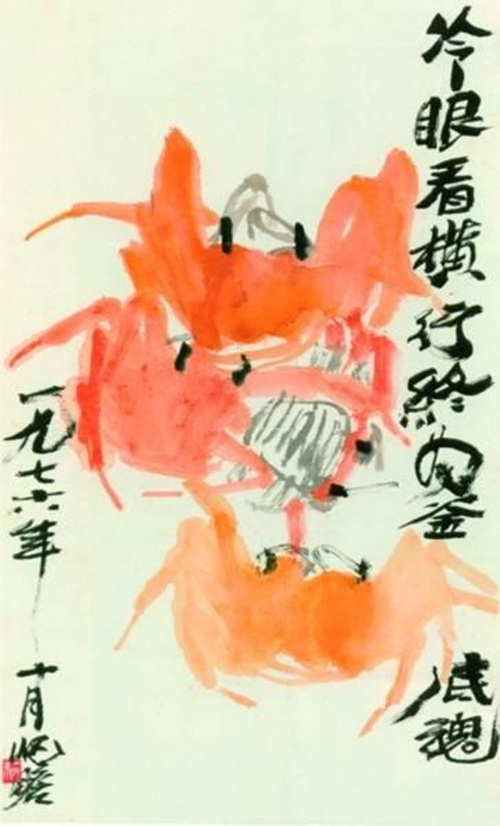 冷眼看横行終为釜底魂
一九七六年十月